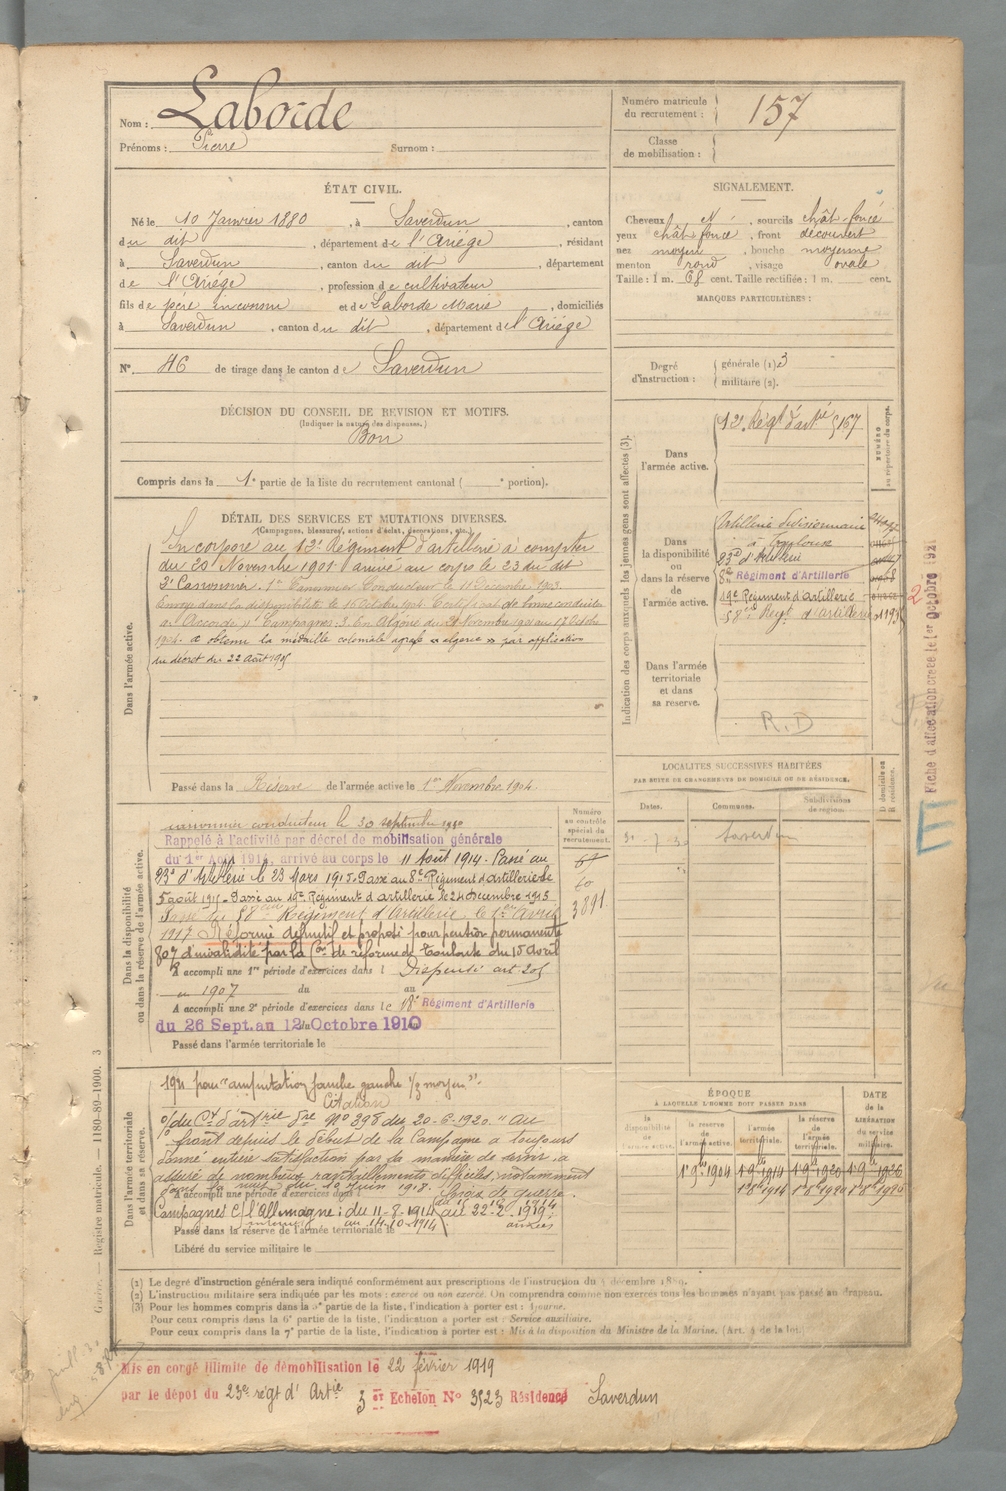 Nom : Laborde
Prénoms : Pierre Surnom :
Numéro matricule du recrutement : 157
Classe de mobilisation :
ÉTAT CIVIL.
Né le 10 Janvier 1880, à Saverdun, canton
du dit, département de l'Ariège, résidant
à Saverdun, canton du dit, département
de l'Ariège, profession de cultivateur
fils de père inconnu et de Laborde Marie, domiciliés
à Saverdun, canton du dit, département de l'Ariège
N° 46 de tirage dans le canton de Saverdun
SIGNALEMENT.
Cheveux N, sourcils chât-foncé
yeux chât foncé, front découvert
nez moyen, bouche moyenne
menton rond, visage ovale
Taille : 1 m. 68 cent. Taille rectifiée : 1 m. cent.
MARQUES PARTICULIÈRES :
Degré d'instruction : générale (1) 3
militaire (2).
DÉCISION DU CONSEIL DE REVISION ET MOTIFS.
(Indiquer la nature des dispenses.)
Bon
Compris dans la 1e partie de la liste du recrutement cantonal ( e portion).
DÉTAIL DES SERVICES ET MUTATIONS DIVERSES.
(Campagnes, blessures, actions d'éclat, décorations, etc.)
Dans l'armée active.
Incorporé au 12e Régiment d'artillerie à compter
du 20 Novembre 1901 arrivé au corps le 23 du dit
2e Canonnier. 1er Canonnier Conducteur le 11 Décembre 1903
Envoyé dans la disponibilité le 16 Octobre 1904. Certificat de bonne conduite
Accordé. Campagnes : En Algérie du Novembre 1901 au 17 Octobre
1904. a obtenu la médaille coloniale agrafe "algérie" par application
du décret du 22 août 1905
Passé dans la Réserve de l'armée active le 1er Novembre 1904.
Indication des corps auxquels les jeunes gens sont affectés (3).
NUMÉRO au répertoire du corps.
Dans l'armée active.
12e Régt d'artie 167
Dans la disponibilité ou dans la réserve de l'armée active.
Artillerie divisionnaire
à Toulouse
23e d'Artillerie
8e Régiment d'Artillerie
19e Régiment d'Artillerie
58e Régt d'artillerie
Dans l'armée territoriale et dans sa réserve.
R.D
Fiche d'affectation créée le 1er Octobre 1921
E
LOCALITÉS SUCCESSIVES HABITÉES
PAR SUITE DE CHANGEMENTS DE DOMICILE OU DE RÉSIDENCE.
Dates. Communes. Subdivisions de région. D domicile ou R résidence.
Saverdun
Dans la disponibilité ou dans la réserve de l'armée active.
Numéro au contrôle spécial du recrutement.
canonnier conducteur le 30 septembre
Rappelé à l'activité par décret de mobilisation générale
du 1er Août 1914, arrivé au corps le 11 Août 1914. Passé au
23e d'Artillerie le 23 Mars 1915. Passé au 8e Régiment d'artillerie le
5 août 1915. Passé au 19e Régiment d'artillerie le 24 décembre 1915
Passé au 58eme Régiment d'Artillerie le 1er Avril
1917 Réformé définitif et proposé pour pension permanente
80% d'invalidité par la Con de réforme de Toulouse du 15 avril
A accompli une 1re période d'exercices dans l Dispensé art 205
en 1907 du au
A accompli une 2e période d'exercices dans le 18e Régiment d'Artillerie
du 26 Sept. au 12 Octobre 1910
Passé dans l'armée territoriale le
Dans l'armée territoriale et dans sa réserve.
1921 pour "amputation jambe gauche 1/3 moyen".
Citation
N° 398 du 20-6-1920. "Au
front depuis le début de la Campagne a toujours
donné entière satisfaction par sa manière de servir, a
assuré de nombreux ravitaillements difficiles, notamment
dans la nuit du juin 1918. Croix de guerre.
A accompli une période d'exercices dans
Campagnes C/ l'Allemagne : du 11-8-1914 au 22-2-1919.
Passé dans la réserve de l'armée territoriale le
Libéré du service militaire le
ÉPOQUE À LAQUELLE L'HOMME DOIT PASSER DANS
DATE de la LIBÉRATION du service militaire.
la disponibilité de l'armée active.
la réserve de l'armée active.
l'armée territoriale.
la réserve de l'armée territoriale.
1er 9bre 1904 1er 9bre 1914 1er 9bre 1920 1er 9bre 1926
1er 8bre 1914 1er 8bre 1920 1er 8bre 1926
(1) Le degré d'instruction générale sera indiqué conformément aux prescriptions de l'instruction du 4 décembre 1889.
(2) L'instruction militaire sera indiquée par les mots : exercé ou non exercé. On comprendra comme non exercés tous les hommes n'ayant pas passé au drapeau.
(3) Pour les hommes compris dans la 5e partie de la liste, l'indication à porter est : Ajourné.
Pour ceux compris dans la 6e partie de la liste, l'indication à porter est : Service auxiliaire.
Pour ceux compris dans la 7e partie de la liste, l'indication à porter est : Mis à la disposition du Ministre de la Marine. (Art. 4 de la loi.
Guerre. — Registre matricule. — 1180-89-1900. 3
Mis en congé illimité de démobilisation le 22 février 1919
par le dépôt du 23e régt d'Artie 3 eme Echelon N° 3523 Résidence Saverdun